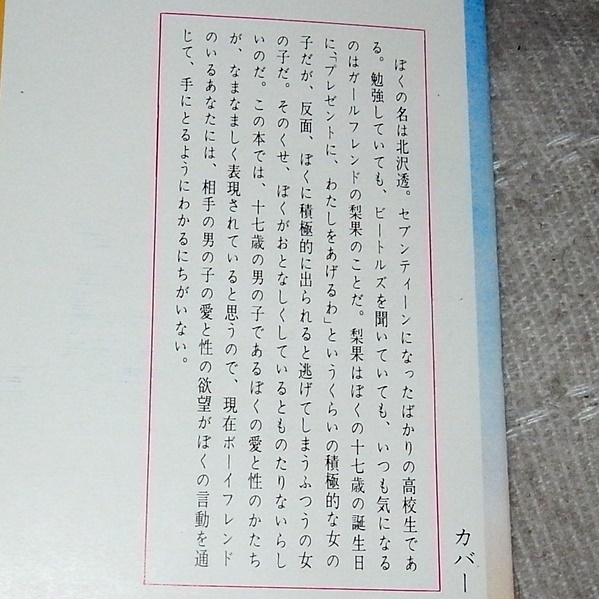 ぼくの名は北沢透。セブンティーンになったばかりの高校生であ
る。勉強していても、ビートルズを聞いていても、いつも気になる
のはガールフレンドの梨果のことだ。梨果はぼくの十七歳の誕生日
に、「プレゼントに、わたしをあげるわ」というくらいの積極的な女の
子だが、反面、ぼくに積極的に出られると逃げてしまうふつうの女
の子だ。そのくせ、ぼくがおとなしくしているとものたりないらし
いのだ。この本では、十七歳の男の子であるぼくの愛と性のかたち
が、なまなましく表現されていると思うので、現在ボーイフレンド
のいるあなたには、相手の男の子の愛と性の欲望がぼくの言動を通
じて、手にとるようにわかるにちがいない。
カバー